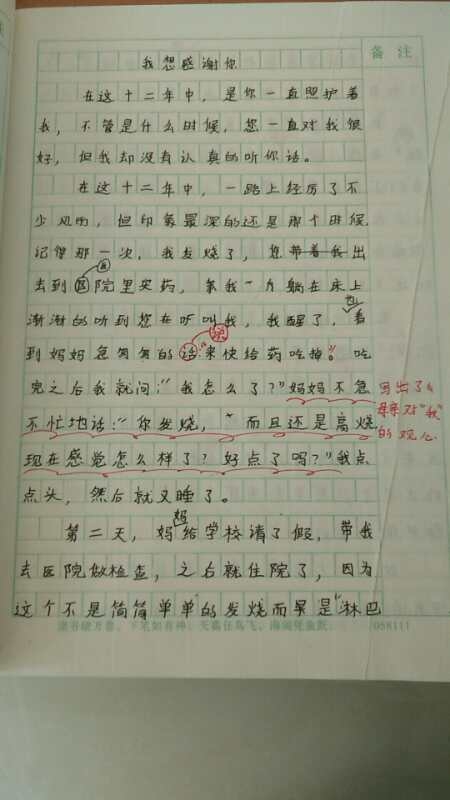 备注
我想感谢你
在这十二年中，是你一直照护着
我，不管是什么时候，您一直对我很
好，但我却没有认真的听你话。
在这十二年中，一路上经历了不
少风雨，但印象最深的还是那个时候
记得那一次，我发烧了，您带着我出
去到医院里买药，等我一个躺在床上
渐渐的听到您在呼叫我，我醒了，看
到妈妈急匆匆的话："来快给药吃掉。"吃
完之后我就问："我怎么了？"妈妈不急
不忙地话："你发烧，而且还是高烧
现在感觉怎么样了？好点了吗？"我点
点头，然后就又睡了。
写出了
母亲对"我"
的观心
第二天，妈妈给学校请了假，带我
去医院做检查，之后就住院了，因为
这个不是简简单单"的发烧而是"淋巴
读书破万卷，下笔如有神，天高任鸟飞，海阔凭鱼跃
058111